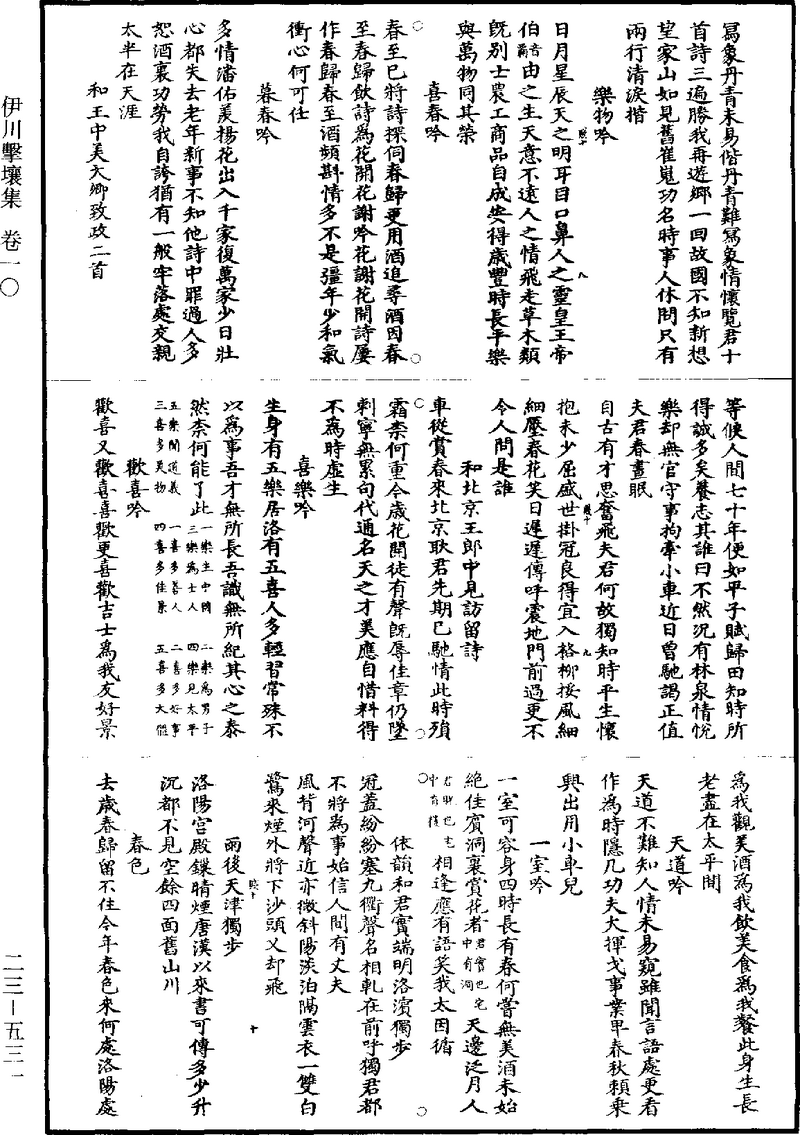 寫象丹青未易偕丹青難寫象情懷覽君十
首詩三遍勝我再遊鄉一回故國不知新想
望家山如見舊崔嵬功名時事人休問只有
兩行清淚揩
樂物吟
日月星辰天之明耳目口鼻人之靈皇王帝
伯由之生天意不遠人之情飛走草木類
既別士農工商品自成安得歲豐時長平樂
與萬物同其榮
喜春吟
春至已將詩探伺春歸更用酒追尋酒因春
至春歸飲詩為花開花謝吟花謝花開詩屢
作春歸春至酒頻斟情多不是彊年少和氣
衝心何可任
暮春吟
多情潘佑羨楊花出入千家復萬家少日壯
心都失去老年新事不知他詩中罪過人多
恕酒裏功勞我自誇猶有一般牢落處交親
太半在天涯
和王中美大卿致政二首
等候人間七十年便如平子賦歸田知時所
得誠多矣養志其誰曰不然況有林泉情悅
樂却無官守事拘牽小車近日曾馳謁正值
夫君春晝眠
自古有才思奮飛夫君何故獨知時平生懷
抱未少屈盛世掛冠良得宜入格柳挼風細
細壓春花笑日遲遲傳呼震地門前過更不
令人問是誰
和北京王郎中見訪留詩
車從賞春來北京耿君先期已馳情此時殞
霜柰何重今歲花開徒有聲既辱佳章仍墜
刺寧無累句代通名天之才美應自惜料得
不為時虛生
喜樂吟
生身有五樂居洛有五喜人多輕習常殊不
以為事吾才無所長吾識無所紀其心之泰
然柰何能了此一樂生中國 二樂為男子 三樂為士人 四樂見太平
五樂聞道義 一喜多善人 二喜多好事 三喜多美物 四喜多佳景 五喜多大體
歡喜吟
歡喜又歡喜喜歡更喜歡吉士為我友好景
為我觀美酒為我飲美食為我餐此身生長
老盡在太平間
天道吟
天道不難知人情未易窺雖聞言語處更看
作為時隱几功夫大揮戈事業卑春秋賴乘
興出用小車兒
一室吟
一室可容身四時長有春何嘗無美酒未始
絕佳賓洞裏賞花者君實也宅中有洞天邊泛月人
君貺也宅中有樓相逢應有語笑我太因循
依韻和君實端明洛濱獨步
冠蓋紛紛塞九衢聲名相軋在前呼獨君都
不將為事始信人間有丈夫
風背河聲近亦微斜陽淡泊隔雲衣一雙白
鷺來煙外將下沙頭又却飛
雨後天津獨步
洛陽宮殿鏁晴煙唐漢以來書可傳多少升
沉都不見空餘四面舊山川
春色
去歲春歸留不住今年春色來何處洛陽處
伊川擊壤集 卷一〇
二三—五三一